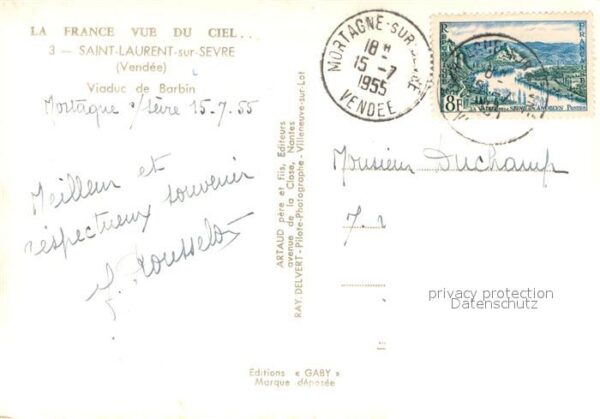 LA FRANCE VUE DU CIEL...
3 — SAINT-LAURENT-sur-SEVRE
(Vendée)
Viaduc de Barbin
Mortagne s/Sèvre 15.7.55
Meilleur et
respectueux souvenir
Rousselot
ARTAUD père et fils, Editeurs
avenue de la Close, Nantes
RAY. DELVERT-Pilote-Photographe-Villeneuve-sur-Lot
Editions « GABY »
Marque déposée
MORTAGNE-SUR-SEVRE
18H
15-7
1955
VENDEE
8F
Monsieur Duchamp
privacy protection
Datenschutz